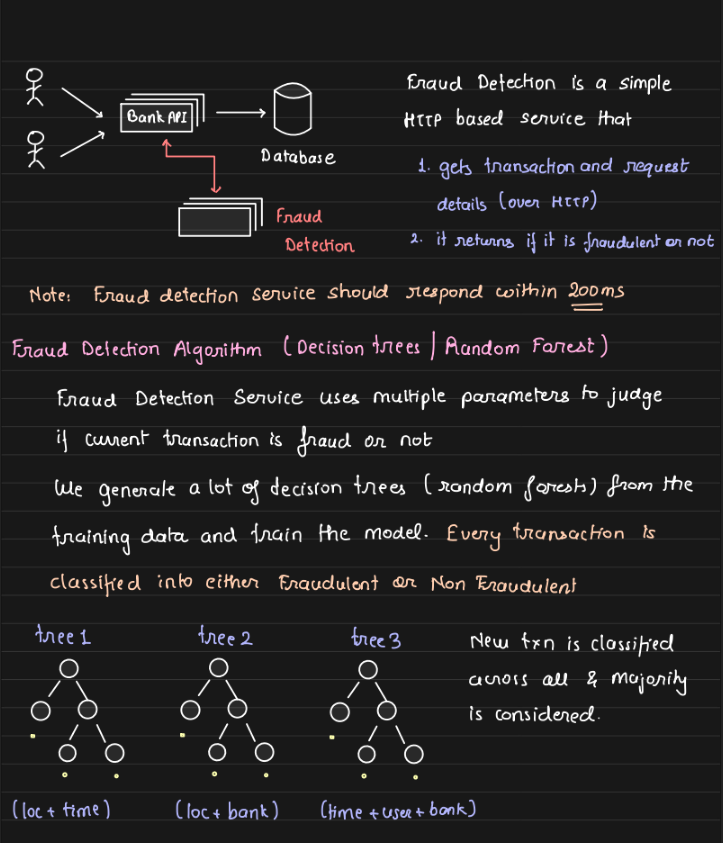 Fraud Detection is a simple
HTTP based service that
1. gets transaction and request
details (over HTTP)
2. it returns if it is fraudulent or not
Bank API
Database
Fraud
Detection
Note: Fraud detection service should respond within 200ms
Fraud Detection Algorithm (Decision trees | Random Forest)
Fraud Detection Service uses multiple parameters to judge
if current transaction is fraud or not
We generate a lot of decision trees (random forests) from the
training data and train the model. Every transaction is
classified into either Fraudulent or Non Fraudulent
tree 1
tree 2
tree 3
New txn is classified
across all & majority
is considered.
(loc + time)
(loc + bank)
(time + user + bank)